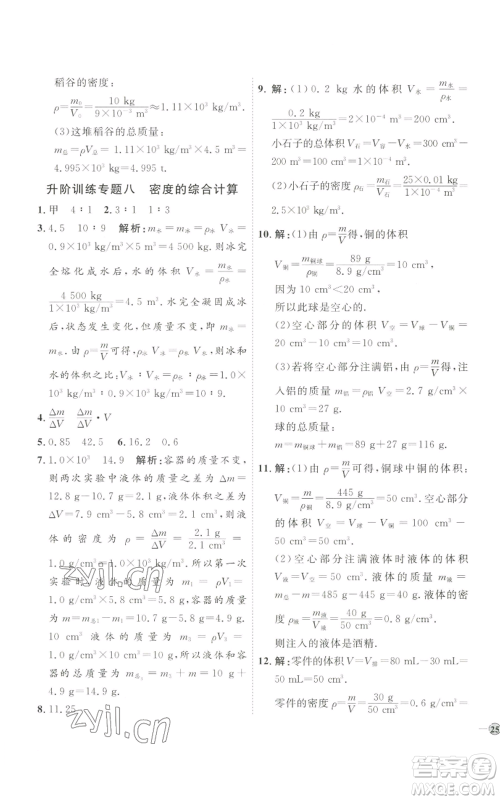 稻谷的密度：
ρ=m₀/V₀=10 kg/(9×10⁻³ m³)≈1.11×10³ kg/m³。
(3)这堆稻谷的总质量：
m总=ρV总=1.11×10³ kg/m³×4.5 m³=
4.995×10³ kg=4.995 t。
升阶训练专题八 密度的综合计算
1. 甲 4∶1 2. 3∶1 1∶3
3. 4.5 10∶9 解析：m水=m冰=ρ冰V冰=
0.9×10³ kg/m³×5 m³=4 500 kg；则冰完
全熔化成水后，水的体积 V水=m水/ρ水=
4 500 kg/(1×10³ kg/m³)=4.5 m³。水完全凝固成冰
后，状态发生变化，但质量不变，由 ρ=m/V可得，冰和
水的体积之比：V冰∶V水=ρ水∶ρ冰=1.0×10³
kg/m³∶0.9×10³ kg/m³=10∶9。
4. Δm/ΔV Δm/ΔV·V
5. 0.85 42.5 6. 16.2 0.6
7. 1.0×10³ 14.9 解析：容器的质量不变，
则两次实验中液体的质量之差为 Δm=
12.8 g-10.7 g=2.1 g，液体体积之差为
ΔV=7.9 cm³-5.8 cm³=2.1 cm³，则液
体的密度为 ρ=Δm/ΔV=2.1 g/2.1 cm³=
1.0 g/cm³=1.0×10³ kg/m³。由第一次
实验可知，此时液体的质量为 m₁=ρV₁=
1.0 g/cm³×5.8 cm³=5.8 g，则容器的质
量为 m=m总-m₁=10.7 g-5.8 g=
4.9 g，所以 m=4.9 g+1.0 g/cm³×
10 cm³=14.9 g。
8. 11.25
9. 解：(1)0.2 kg 水的体积 V水=m水/ρ水=
0.2 kg/(1×10³ kg/m³)=2×10⁻⁴ m³=200 cm³，
小石子的总体积 V石=V容-V水=300 cm³-
200 cm³=100 cm³=1×10⁻⁴ m³。
(2)小石子的密度 ρ石=m石/V石=25×0.01 kg/(1×10⁻⁴ m³)=
2.5×10³ kg/m³。
10. 解：(1)由 ρ=m/V可得，铜的体积
V铜=m铜球/ρ铜=89 g/(8.9 g/cm³)=10 cm³，
因为 10 cm³<20 cm³，
所以此球是空心的。
(2)空心部分的体积 V空=V球-V铜=
20 cm³-10 cm³=10 cm³。
(3)若将空心部分注满铝，由 ρ=m/V可得，
注入铝的质量 m铝=ρ铝V空=2.7 g/cm³×
10 cm³=27 g。
球的总质量：
m=m铜球+m铝=89 g+27 g=116 g。
11. 解：(1)由 ρ=m/V可得，铜球中铜的体积
V铜=m/ρ铜=445 g/(8.9 g/cm³)=50 cm³。
(2)空心部分注满液体时液体的体积
V液=V空=V球-V铜=100 cm³-50 cm³=
50 cm³。
m液=m总-m=485 g-445 g=40 g，液体的密
度 ρ液=m液/V液=40 g/50 cm³=0.8 g/cm³，
则注入的液体是酒精。
12. 解：零件的体积 V=V₂-V₁=80 mL-
30 mL=50 mL=50 cm³，
零件的密度 ρ=m/V=30 g/50 cm³=0.6 g/cm³，
25
zyjl.cn
zyjl.cn
答案圈
MXQE.COM